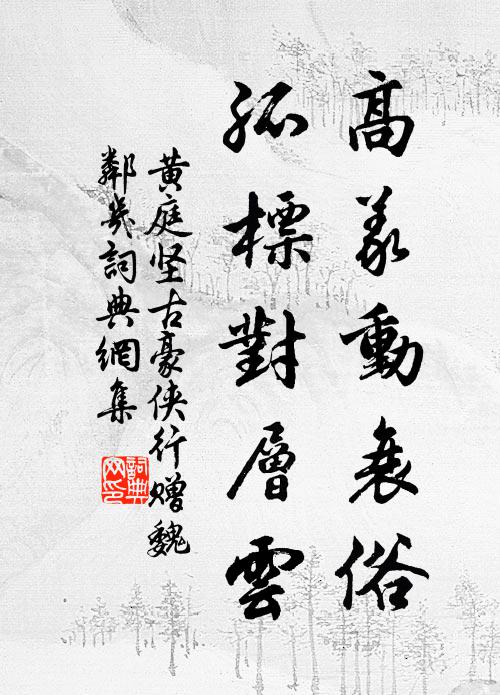 高義動衰俗
孤標對層雲
黄庭坚古豪俠行贈魏
鄰幾詞典網集
詞典
网印